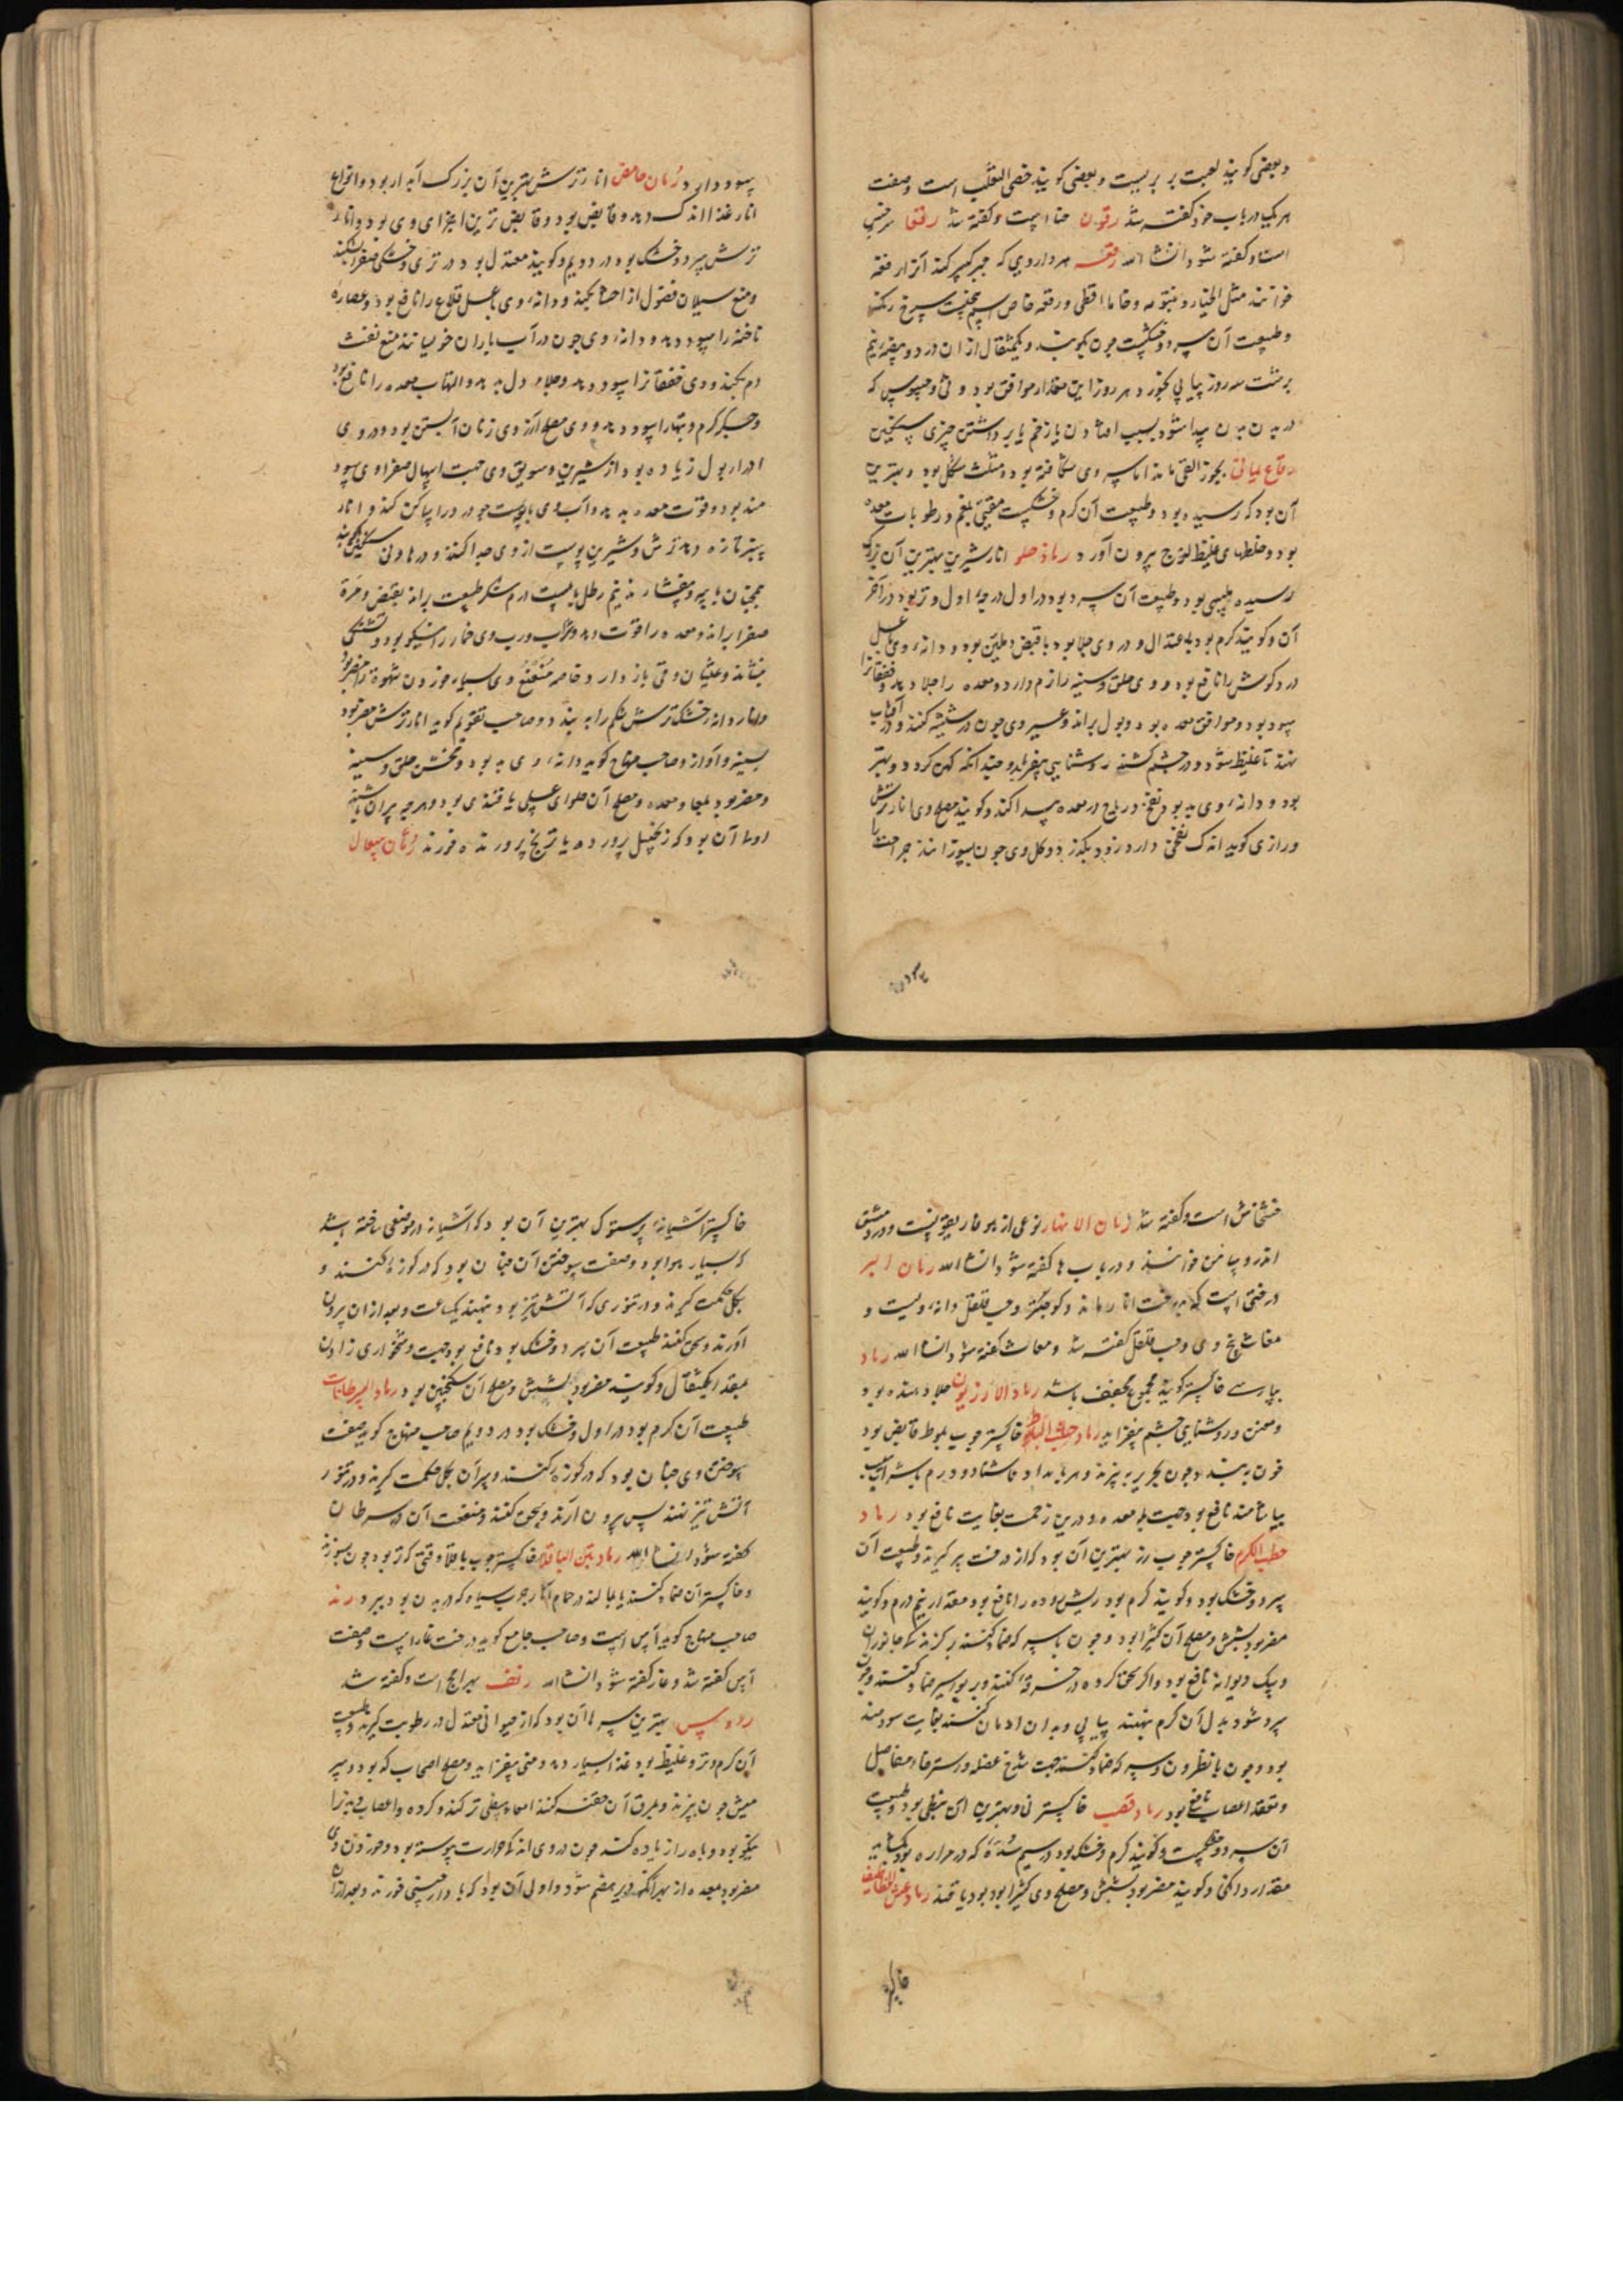 و بعضی کویند لعبت بربریست و بعضی کویند خصی الثعلب است و صفت
هر یک در باب خود کفته شد رقون حنا است و کفته شد رقعا سرخس
است و کفته شود انشاالله رقعه هر دارویی که جبر کسر کند آنرا رقعه
خوانند مثل
و طبیعت آن سرد و خشکست چون بکوبند و یکمثقال ازان در دو بیضه نیم
برشت سه روز پیاپی بخورد هر روز این مقدار موافق بود و
در بدن پیدا شود بسبب افتادن یا زخم یا برداشتن چیزی سنکین
رقاع یمانی بجوز القی ماند اما سر وی شکافته بود و مثلث شکل بود و بهترین
آن بود که رسیده بود و طبیعت آن کرم و خشکست مقیی بلغم و رطوبات معده
بود و خلطهای غلیظ لزج بیرون آورد رمان حلو انار شیرین بهترین آن بزرک
رسیده ملیسی بود و طبیعت آن سرد بود در اول درجه اول و تر بود در آخر
آن و کویند کرم بود به اعتدال و در وی جلا بود با قبض و ملین بود و دانه وی با عسل
درد کوش را نافع بود و وی حلق و سینه را نرم دارد و معده را جلا دهد و خفقانرا
سود بود و موافق معده بود و بول براند و عصیر وی چون در شیشه کنند و در آفتاب
نهند تا غلیظ شود و در چشم کشند روشنایی بیفزاید و چندانکه کهن کردد بهتر
بود و دانه وی بد بود نفخ و ریاح در معده پیدا کند و کویند مصلح وی انار ترش
و رازی کوید اندک نفخی دارد زود بکذرد و کل وی چون بسوزانند جراحت را
سود دارد رمان حامض انار ترش بهترین آن بزرک آبدار بود و انواع
انار غذا اندک دهد و قابض بود و قابض ترین اجزای وی بود و انار
ترش سرد و خشک بود در دویم و کویند معتدل بود در تری و خشکی صفرا بشکند
و منع سیلان فضول از احشا بکند و دانه وی با عسل قلاع را نافع بود و عصاره
ناخنه را سود دهد و دانه وی چون در آب باران خیسانند منع نفث
دم بکند و وی خفقانرا سود دهد و جلا دل بدهد و التهاب معده را نافع بود
و جکر کرم و تبها را سود دهد و وی مصلح آرزوی زنان آبستن بود و در وی
ادرار بول زیاده بود از شیرین و سویق وی جهت اسهال صفراوی سود
مند بود و قوت معده بدهد و آب وی با پوست
ترش و شیرین پوست از وی جدا کنند و در هاون سنکین بکوبند
همچنان با پیه و بیفشارند نیم رطل با بیست درم شکر طبیعت براند بقبض و مره
صفرا براند و معده را قوت دهد و شراب و رب وی خمار را نیکو بود و تشنکی
بنشاند و غثیان و قی باز دارد خاصه منعنع وی بسیار خوردن شهوه را مضر بود
و انار دانه خشک ترش شکم را ببندد و صاحب تقویم کوید انار ترش مضر بود
بسینه و آواز و صاحب منهاج کوید دانه وی بد بود و مخشن حلق و سینه
و مضر بود بمعا و معده و مصلح آن حلوای عسلی یا قندی بود و هر چه
اولی آن بود که زنجبیل پرورده یا ترنج پرورنده خورند رمان سعال
خشخاش است و کفته شد رمان الانهار نوعی از هوفاریقونست و در دمشق
اندروسامن خوانند و در باب ها کفته شود انشاالله رمان البر
درختی است که بدرخت انار ماند و کوچکتر و حب قلقل دانه ویست و
مغاث بیخ وی و حب قلقل کفته شد و مغاث کفته شود انشاالله رماد
بپارسی خاکستر کویند مجموع مجفف باشد رماد الازریون جلا دهنده بود
و روشنایی چشم بیفزاید رماد حطب البلوط خاکستر چوب بلوط قابض بود
خون ببندد چون
بیاشامند نافع بود جهت معده و درین زحمت بغایت نافع بود رماد
حطب الکرم خاکستر چوب رز بهترین آن بود که از درخت پیر کیرند و طبیعت آن
سرد و خشک بود و کویند کرم بود ریش روده را نافع بود مقدار نیم درم و کویند
مضر بود بشش و مصلح آن کثیرا بود و چون با سرکه ضماد کنند بر کزندکی جانوران
و سک دیوانه نافع بود و اکر سحق کرده در خرقه کنند و بر بواسیر ضماد کنند و چون
سرد شود بدل آن کرم بنهند پیاپی و بدان ادمان کنند بغایت سودمند
بود و چون با نطرون و سرکه ضماد کنند جهت شدخ عضله و استرخاء مفاصل
و تعقد اعصاب نافع بود رماد قصب خاکستر نی و بهترین آن نبطی بود و طبیعت
آن سرد و خشکست و کویند کرم و خشک بود در سیم سده که در مراره بود بکشاید
مقدار دانکی و کویند مضر بود بشش و مصلح وی کثیرا بود یا قند رماد عش الخطاطیف
خاکستر آشیانه پرستوک بهترین آن بود که آشیانه در موضعی ساخته باشد
که بسیار هوا بود و صفت سوختن آن چنان بود که در کوزه کنند و
بکل حکمت کیرند و در تنوری که آتش تیز بود بنهند یکساعت و بعد ازان بیرون
آورند و سحق کنند طبیعت آن سرد و خشک بود و نافع بود جهت دشخواری زادن
بمقدار یکمثقال و کویند مضر بود بشش و مصلح آن سکنجبین بود رماد السرطانات
طبیعت آن کرم بود در اول و خشک بود در دویم صاحب منهاج کوید صفت
سوختن وی چنان بود که در کوزه کنند و سر آن بکل حکمت کیرند و در تنور
آتش تیز نهند پس بیرون آرند و سحق کنند و منفعت آن در سرطان
کفته شود انشاالله رماد تبن الباقلا خاکستر چوب باقلا وقتی که تر بود چون بسوزند
و خاکستر آن ضماد کنند یا بمالند در حمام آثار جرب سیاه که در بدن بود ببرد رند
صاحب منهاج کوید آس است و صاحب جامع کوید درخت غار است و صفت
آس کفته شد و غار کفته شود انشاالله رنف بهرامج است و کفته شد
روس بهترین سرها آن بود که از حیوانی معتدل در رطوبت کیرند و طبیعت
آن کرم و تر و غلیظ بود غذا بسیار دهد و منی بیفزاید و مصلح اصحاب کد بود و سر
میش چون بپزند و بمرق آن حقنه کنند امعاء سفلی تر کند و کرده و اعصاب
نیکو بود و باه را زیاده کند چون در وی اندک حرارت پیوسته بود و خوردن وی
مضر بود بمعده از بهر آنکه دیر هضم شود و اولی آن بود که با دارچینی خورند و بعد ازان